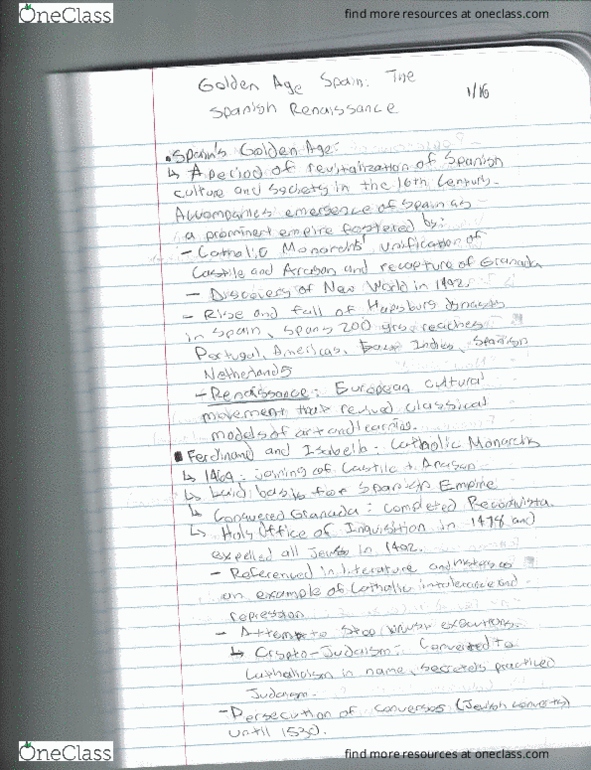 OneClass
find more resources at oneclass.com
Golden Age Spain: The
Spanish Renaissance
1/16
• Spain's Golden Age:
↳ A period of revitalization of Spanish
culture and society in the 16th Century.
Accompanies emergence of Spain as
a prominent empire fostered by:
- Catholic Monarchs' unification of
Castile and Aragon and recapture of Granada
- Discovery of New World in 1492.
- Rise and fall of Hapsburg dynasty
in Spain, spans 200 yrs, reaches
Portugal, Americas, Indies, Spanish
Netherlands
- Renaissance: European cultural
movement that revived classical
models of art and learning.
▪ Ferdinand and Isabella: Catholic Monarchs
↳ 1469: joining of Castile + Aragon
↳ Laid basis for Spanish Empire
↳ Conquered Granada: completed Reconquista.
↳ Holy Office of Inquisition in 1478 and
expelled all Jews in 1492.
- Referenced in literature and history as
an example of Catholic intolerance and
repression
- Attempt to stop executions.
↳ Crypto-Judaism: Converted to
Catholicism in name, secretly practiced
Judaism.
- Persecution of conversos (Jewish converts)
until 1530.
OneClass
find more resources at oneclass.com